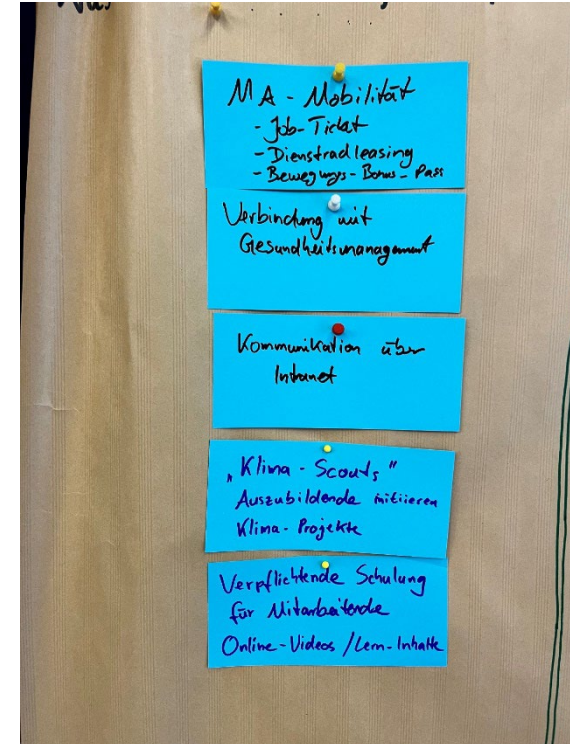 MA - Mobilität
- Job-Ticket
- Dienstradleasing
- Bewegungs-Bonus-Pass
Verbindung mit
Gesundheitsmanagement
Kommunikation über
Intranet
„Klima-Scouts"
Auszubildende initiieren
Klima-Projekte
Verpflichtende Schulung
für Mitarbeitende
Online-Videos / Lern-Inhalte